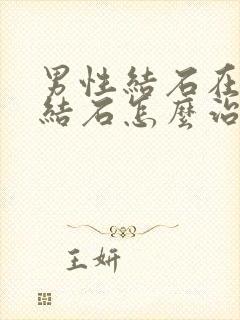 男性結石在
結石怎麼治
王妍